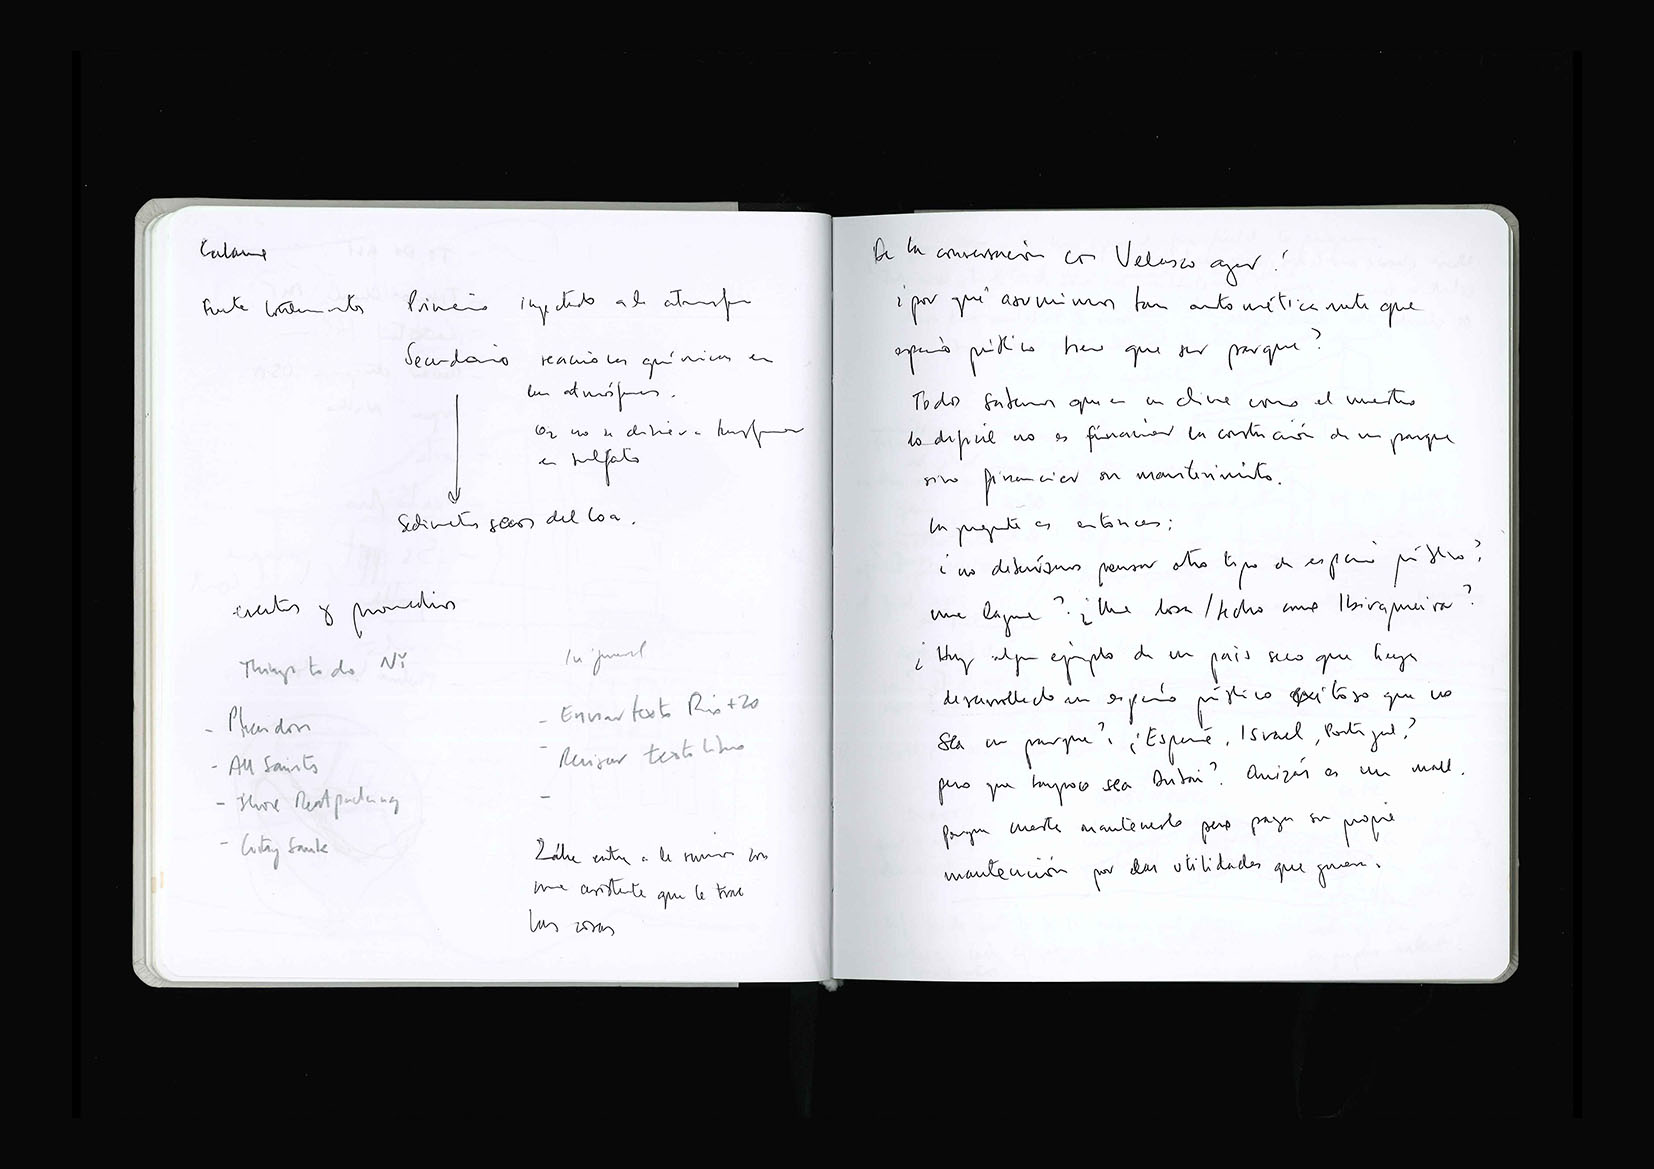 Calama
Fuente contaminantes Primario inyectado a la atmósfera
Secundario reacciones químicas en
la atmósfera.
en sulfato
Sedimentos secos del Loa.
eventos y promedios
Things to do NY
- All Saints
-
In general
- Enviar texto Rio+20
- Revisar texto libro
-
entra a la reunión con
una asistente que le trae
las cosas
De la conversación con Velasco ayer:
¿por qué asumimos tan automáticamente que
espacio público tiene que ser parque?
Todos sabemos que en un clima como el nuestro
lo difícil no es financiar la construcción de un parque
sino financiar su mantenimiento.
La pregunta es entonces:
¿no deberíamos pensar otro tipo de espacio público?
una laguna? ¿Una losa/techo como Ibirapuera?
¿Hay algún ejemplo de un país seco que haya
desarrollado un espacio público exitoso que no
sea un parque? ¿España, Israel, Portugal?
pero que tampoco sea Dubai? Quizás es un mall.
porque cuesta mantenerlo pero paga su propia
mantención por las utilidades que genera.